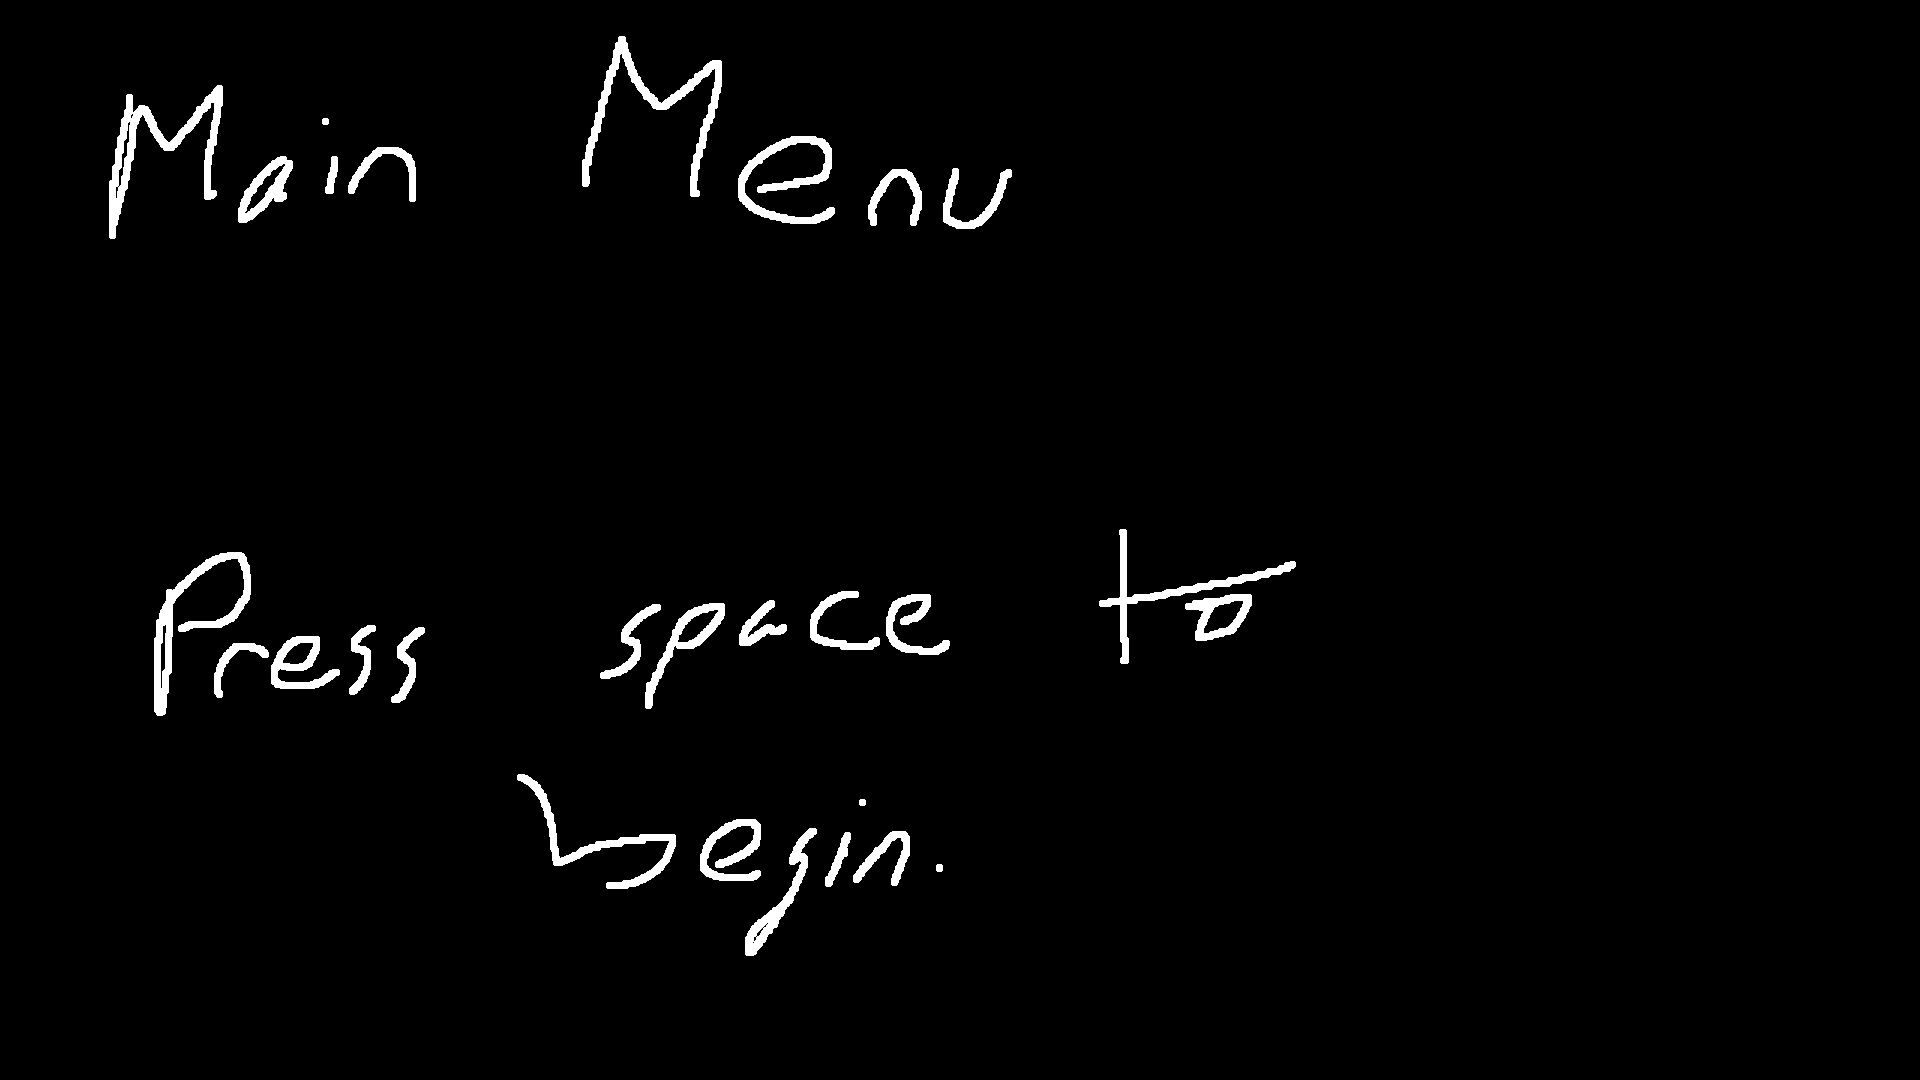 Main Menu
Press space to
begin.